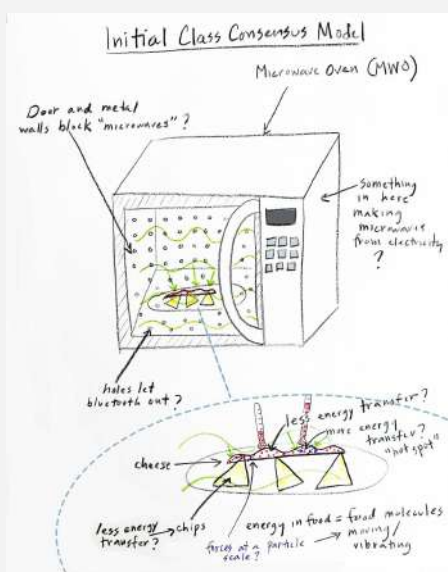 Initial Class Consensus Model
Microwave Oven (MWO)
Door and metal
walls block "microwaves"?
Something
in here
making
microwaves
from electricity
?
holes let
bluetooth out?
less energy transfer?
more energy
transfer?
"hot spot"
cheese
less energy
transfer?
chips
energy in food = food molecules
moving/
vibrating
forces at a particle
scale?